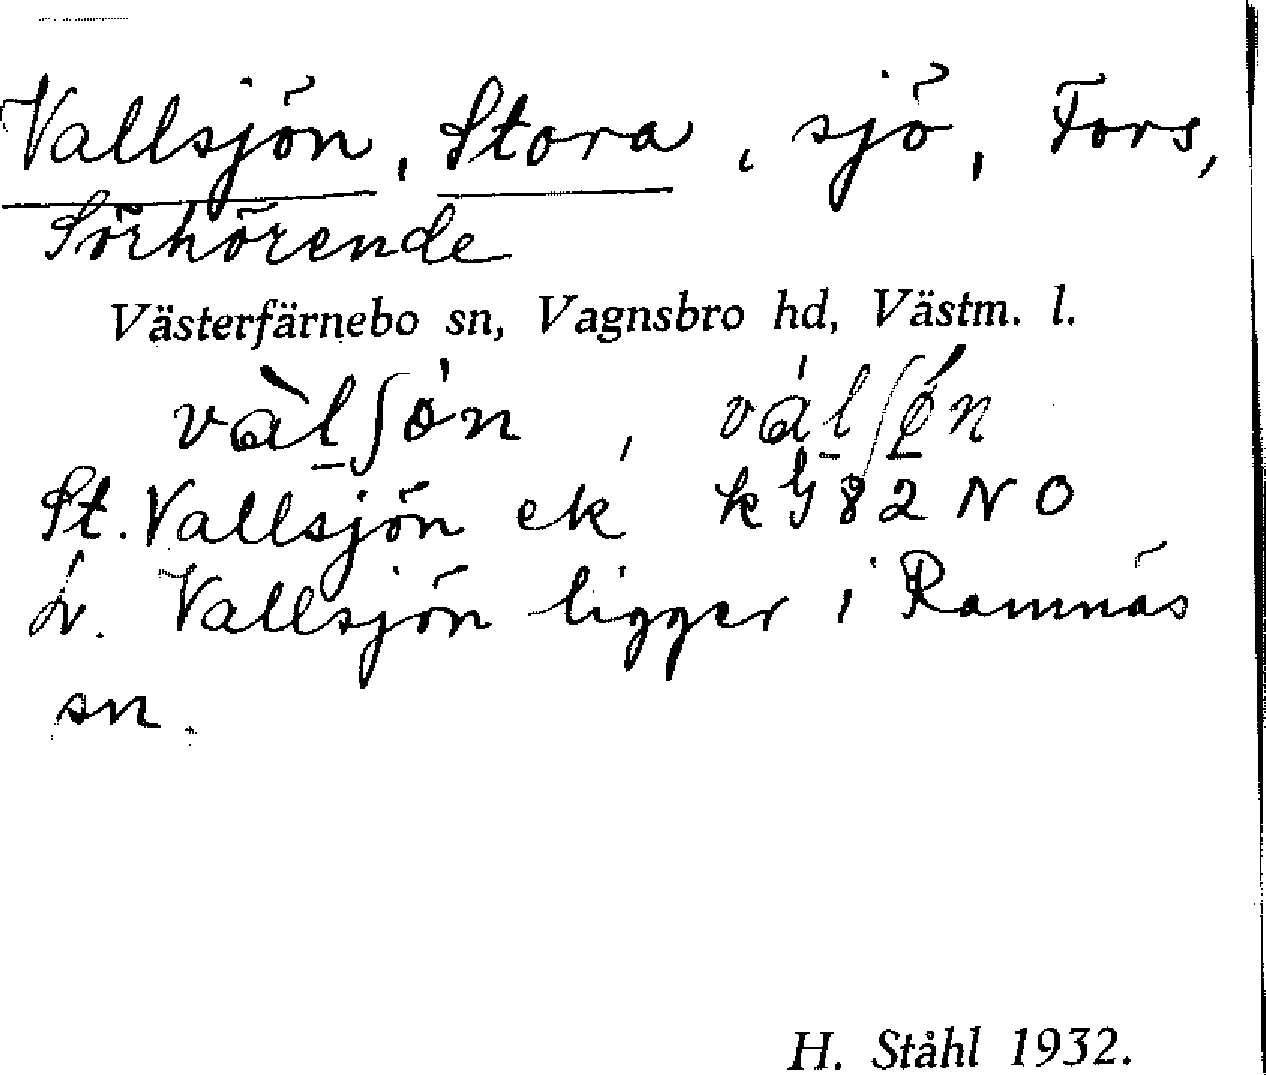 Vallsjön, Stora, sjö, Fors,
Sörhörende
Västerfärnebo sn, Vagnsbro hd, Västm. l.
vàl̠ʃón, vál̠ʃǿ̠n
St. Vallsjön ek kG 82 NO
Lv. Vallsjön ligger i Ramnäs
sn.
H. Ståhl 1932.